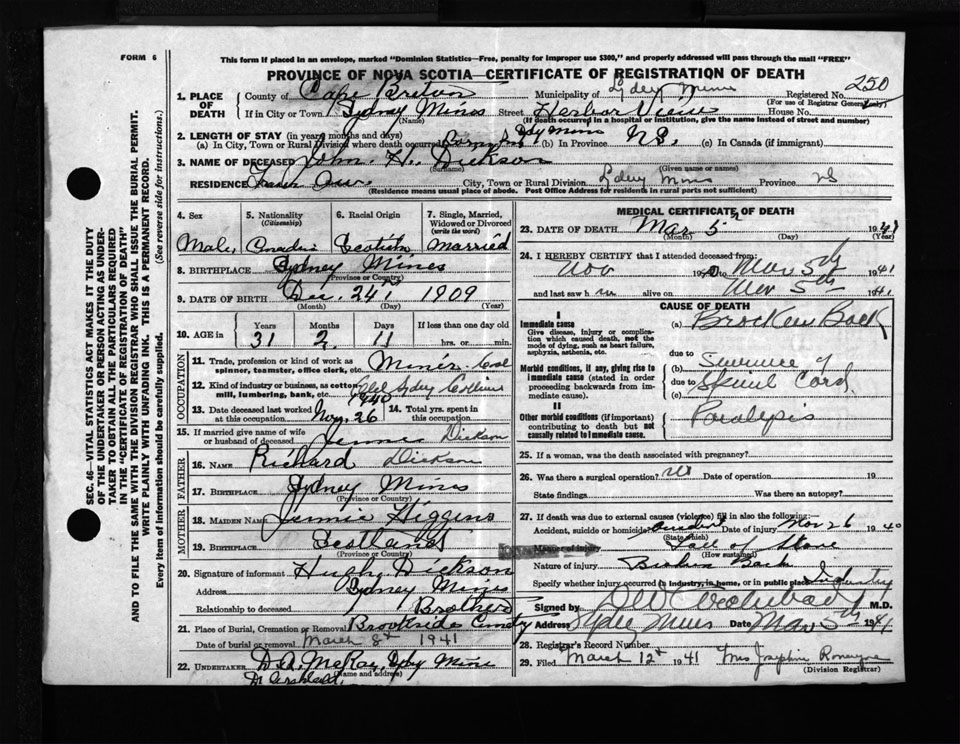 FORM 6
This form if placed in an envelope, marked "Dominion Statistics—Free, penalty for improper use $300," and properly addressed will pass through the mail "FREE"
PROVINCE OF NOVA SCOTIA—CERTIFICATE OF REGISTRATION OF DEATH
250
1. PLACE OF DEATH
County of Cape Breton Municipality of Sydney Mines Registered No.
(For use of Registrar General only)
If in City or Town Sydney Mines Street Harbor View House No.
(Name) (If death occurred in a hospital or institution, give the name instead of street and number)
2. LENGTH OF STAY (in years, months and days)
(a) In City, Town or Rural Division where death occurred Born Sydney Mines (b) In Province NS. (c) In Canada (if immigrant)
3. NAME OF DECEASED John H. Dickson
(Surname) (Given name or names)
RESIDENCE Ave. City, Town or Rural Division Sydney Mines Province NS
(Residence means usual place of abode. Post Office Address for residents in rural parts not sufficient)
4. Sex
5. Nationality (Citizenship)
6. Racial Origin
7. Single, Married, Widowed or Divorced (write the word)
Male Scotish Married
8. BIRTHPLACE Sydney Mines
(Province or Country)
9. DATE OF BIRTH Dec. 24 1909
(Month) (Day) (Year)
10. AGE in Years Months Days If less than one day old
31 2 11 hrs. or min.
OCCUPATION
11. Trade, profession or kind of work as spinner, teamster, office clerk, etc. Miner Coal
12. Kind of industry or business, as cotton mill, lumbering, bank, etc. Old Sydney Collieries
1940
13. Date deceased last worked at this occupation Nov. 26
14. Total yrs. spent in this occupation
15. If married give name of wife or husband of deceased Jennie Dickson
FATHER
16. NAME Richard Dickson
17. BIRTHPLACE Sydney Mines
(Province or Country)
MOTHER
18. MAIDEN NAME Jennie Higgins
19. BIRTHPLACE Scotland
(Province or Country)
20. Signature of informant Hugh Dickson
Address Sydney Mines
Relationship to deceased Brother
21. Place of Burial, Cremation or Removal Brookside Cemetry
Date of burial or removal March 8th 1941
22. UNDERTAKER D.A. McRay, Sydney Mines
(Name and address)
MEDICAL CERTIFICATE OF DEATH
23. DATE OF DEATH Mar 5 1941
(Month) (Day) (Year)
24. I HEREBY CERTIFY that I attended deceased from:
Nov 1940 to Mar 5th 1941
and last saw h im alive on Mar 5th 1941
CAUSE OF DEATH
I
Immediate cause
Give disease, injury or complication which caused death, not the mode of dying, such as heart failure, asphyxia, asthenia, etc.
(a) Brocken Back
due to
Morbid conditions, if any, giving rise to immediate cause (stated in order proceeding backwards from immediate cause).
(b) Severence of
due to Spinal Cord
(c)
II
Other morbid conditions (if important) contributing to death but not causally related to immediate cause.
Paralysis
25. If a woman, was the death associated with pregnancy?
26. Was there a surgical operation? no Date of operation 19
State findings Was there an autopsy?
27. If death was due to external causes (violence) fill in also the following:—
Accident, suicide or homicide? Accident Date of injury Nov 26 1940
(State which)
Manner of injury Fall of Stone
(How sustained)
Nature of injury Broken Back
Specify whether injury occurred in industry, in home, or in public place Industry
Signed by D W Archibald M.D.
Address Sydney Mines Date Mar 5th 1941
28. Registrar's Record Number
29. Filed March 12th 1941 Mrs Josephine
(Division Registrar)
SEC. 46—VITAL STATISTICS ACT MAKES IT THE DUTY OF THE UNDERTAKER OR PERSON ACTING AS UNDERTAKER TO OBTAIN ALL THE PARTICULARS REQUIRED IN THE "CERTIFICATE OF REGISTRATION OF DEATH" AND TO FILE THE SAME WITH THE DIVISION REGISTRAR WHO SHALL ISSUE THE BURIAL PERMIT.
WRITE PLAINLY WITH UNFADING INK. THIS IS A PERMANENT RECORD.
Every item of information should be carefully supplied. (See reverse side for instructions.)